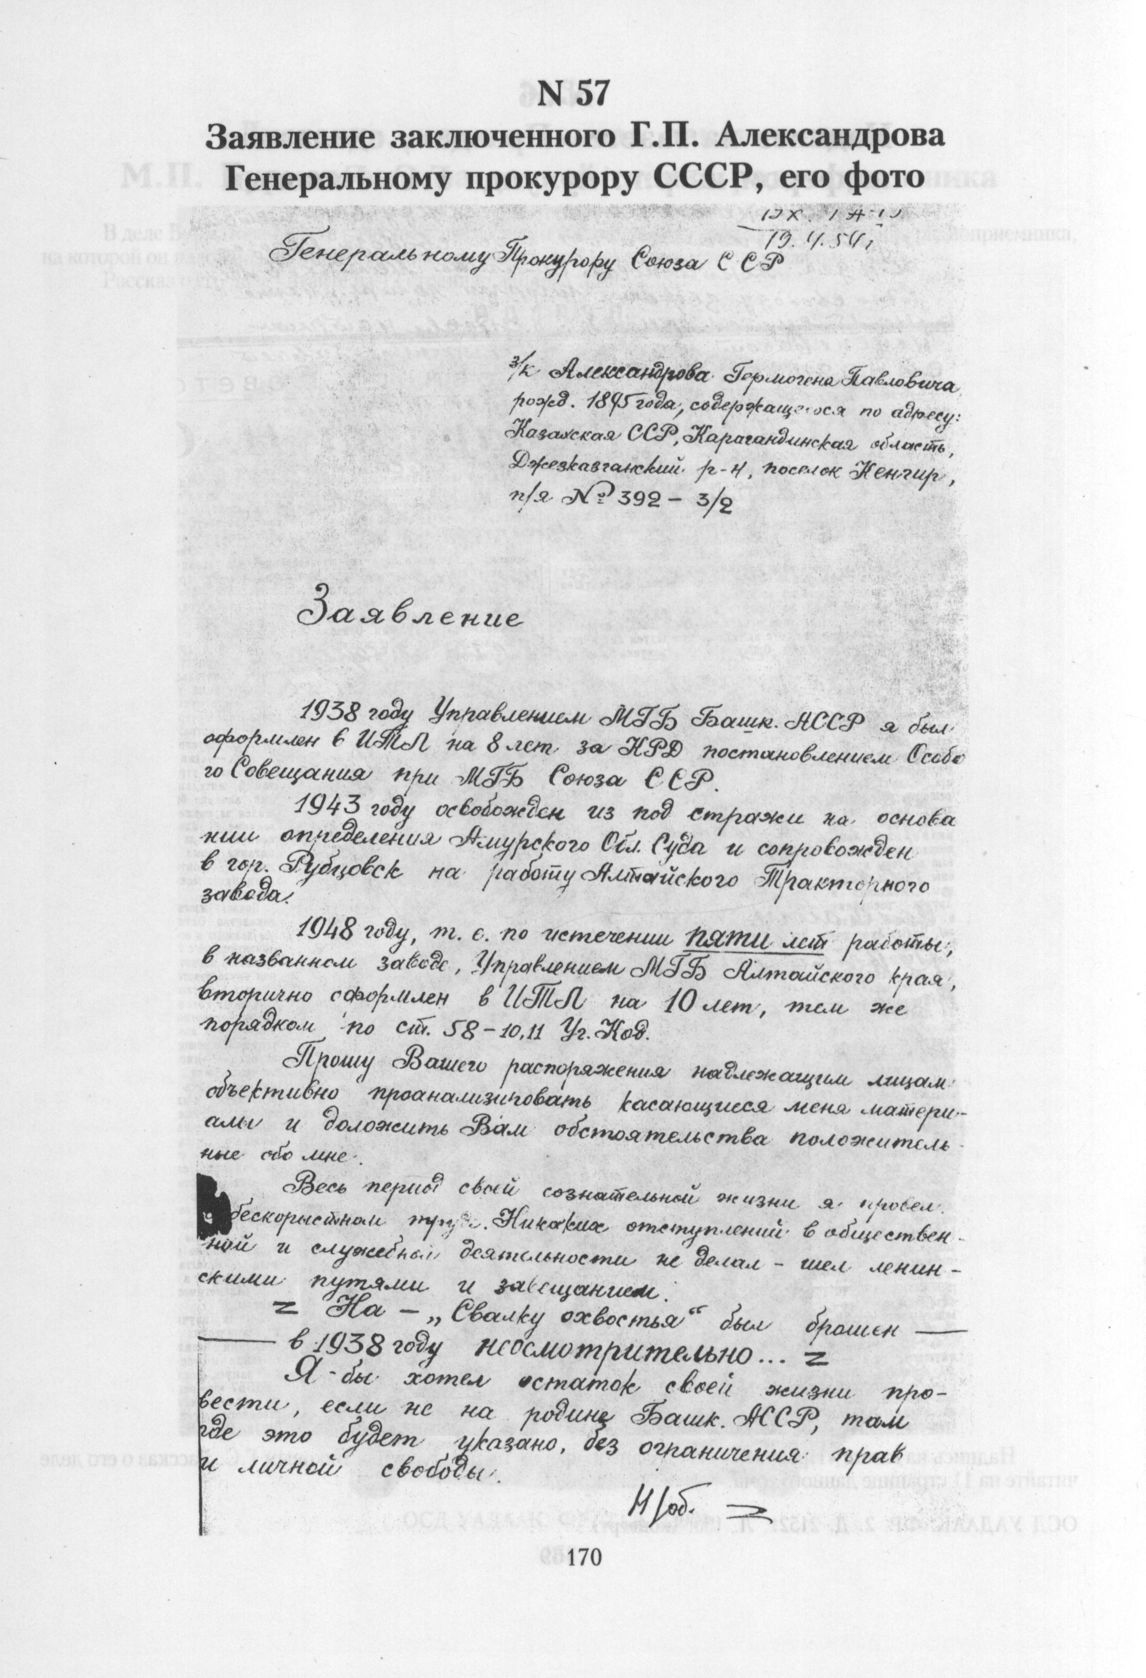 N 57
Заявление заключенного Г.П. Александрова
Генеральному прокурору СССР, его фото
19.4.54г
Генеральному Прокурору Союза ССР
з/к Александрова Гермогена Павловича
рожд. 1895 года, содержащегося по адресу:
Казахская ССР, Карагандинская область,
Джезказганский р-н, поселок Кенгир,
п/я № 392 – 3/2
Заявление
1938 году Управлением МГБ Башк. АССР я был
оформлен в ИТЛ на 8 лет за КРД постановлением Особо
го Совещания при МГБ Союза ССР.
1943 году освобожден из под стражи на основа
нии определения Амурского Обл. Суда и сопровожден
в гор. Рубцовск на работу Алтайского Тракторного
завода.
1948 году, т. е. по истечении пяти лет работы,
в названном заводе, Управлением МГБ Алтайского края,
вторично оформлен в ИТЛ на 10 лет, тем же
порядком по ст. 58–10,11 Уг. Код.
Прошу Вашего распоряжения надлежащим лицам
объективно проанализировать касающиеся меня матери-
алы и доложить Вам обстоятельства положитель-
ные обо мне.
Весь период своей сознательной жизни я провел
бескорыстном труде. Никаких отступлений в обществен-
ной и служебной деятельности не делал – шел ленин-
скими путями и завещанием.
На – „Свалку охвостья" был брошен —
— в 1938 году неосмотрительно...
Я-бы хотел остаток своей жизни про-
вести, если не на родине Башк. АССР, там
где это будет указано, без ограничения прав
и личной свободы.
Н/об.
170